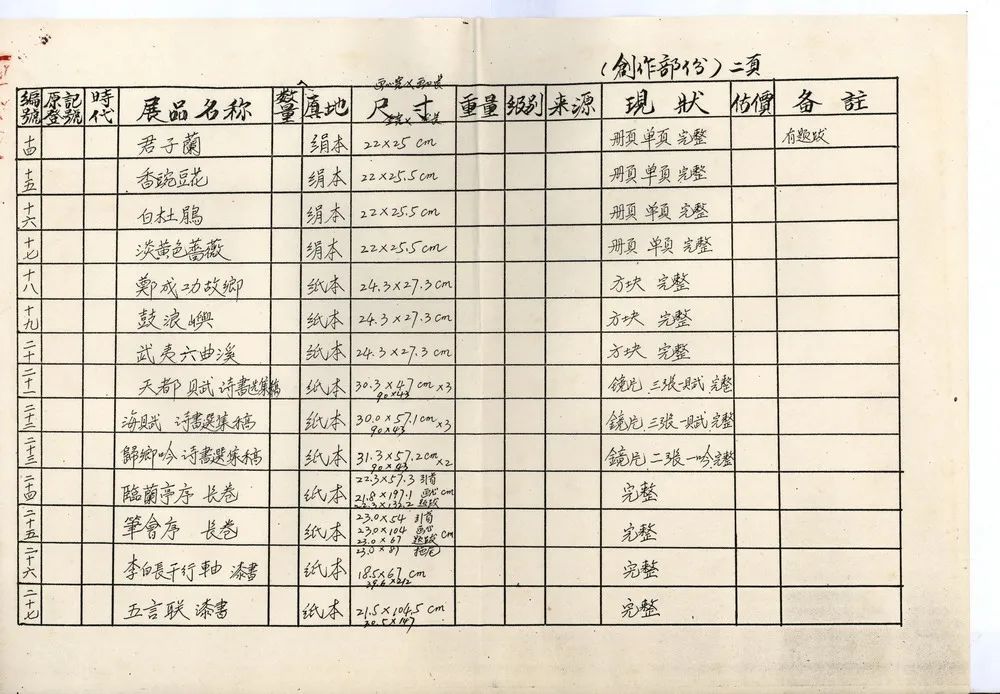 (創作部份)二頁
畫心寬×畫心長
編號 原登記號 時代 展品名称 数量 質地 尺寸 重量 级别 来源 現狀 估價 备註
全寬×全長
十四 君子蘭 绢本 22×25cm 册頁 单頁 完整 有题跋
十五 香豌豆花 绢本 22×25.5cm 册頁 单頁 完整
十六 白杜鵑 绢本 22×25.5cm 册頁 单頁 完整
十七 淡黄色薔薇 绢本 22×25.5cm 册頁 单頁 完整
十八 鄭成功故鄉 纸本 24.3×27.3cm 方块 完整
十九 鼓浪嶼 纸本 24.3×27.3cm 方块 完整
二十 武夷六曲溪 纸本 24.3×27.3cm 方块 完整
二十一 天都賦 诗書选集稿 纸本 30.3×47cm×3 鏡片 三張一賦 完整
90×43
二十二 海賦 诗書選集稿 纸本 30.0×57.1cm×3 鏡片 三張一賦 完整
90×43
二十三 歸鄉吟 诗書選集稿 纸本 31.3×57.2cm×2 鏡片 二張一吟 完整
90×43
二十四 臨蘭亭序 長卷 纸本 22.3×57.3 引首 完整
21.8×197.1 画心 cm
22.3×132.2 题跋
二十五 筆會序 長卷 纸本 23.0×54 引首 完整
23.0×104 画心
23.0×67 题跋 cm
23.0×81 拖尾
二十六 李白長干行軸 漆書 纸本 18.5×67cm 完整
39.6×212
二十七 五言联 漆書 纸本 21.5×104.5cm 完整
30.5×147